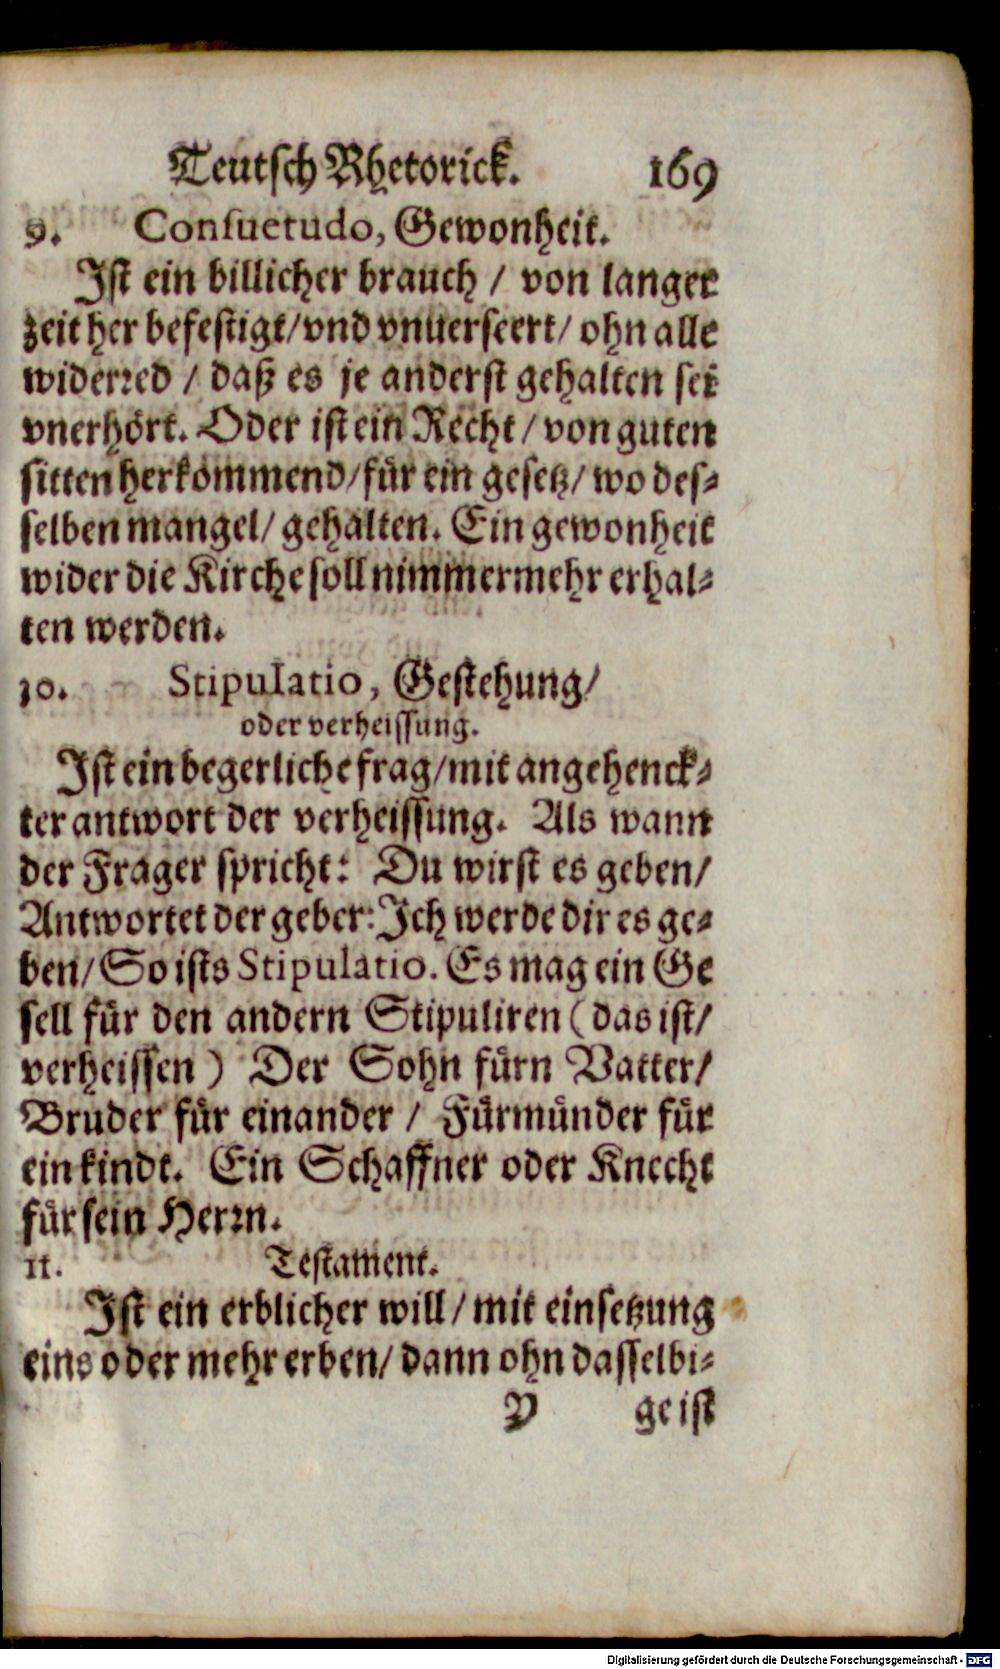 Teutsch Rhetorick. 169
9. Consuetudo, Gewonheit.
Ist ein billicher brauch / von langer
zeit her befestigt/vnd vnuerseert/ ohn alle
widerred / daß es je anderst gehalten sei
vnerhört. Oder ist ein Recht / von guten
sitten herkommend/für ein gesetz/ wo des-
selben mangel/ gehalten. Ein gewonheit
wider die Kirche soll nimmermehr erhal-
ten werden.
10. Stipulatio, Gestehung/
oder verheissung.
Ist ein begerliche frag/mit angehenck-
ter antwort der verheissung. Als wann
der Frager spricht: Du wirst es geben/
Antwortet der geber: Ich werde dir es ge-
ben/ So ists Stipulatio. Es mag ein Ge
sell für den andern Stipuliren ( das ist/
verheissen ) Der Sohn fürn Vatter/
Bruder für einander / Fürmünder für
ein kindt. Ein Schaffner oder Knecht
für sein Herrn.
11. Testament.
Ist ein erblicher will / mit einsetzung
eins oder mehr erben/ dann ohn dasselbi-
Y ge ist
Digitalisierung gefördert durch die Deutsche Forschungsgemeinschaft - DFG